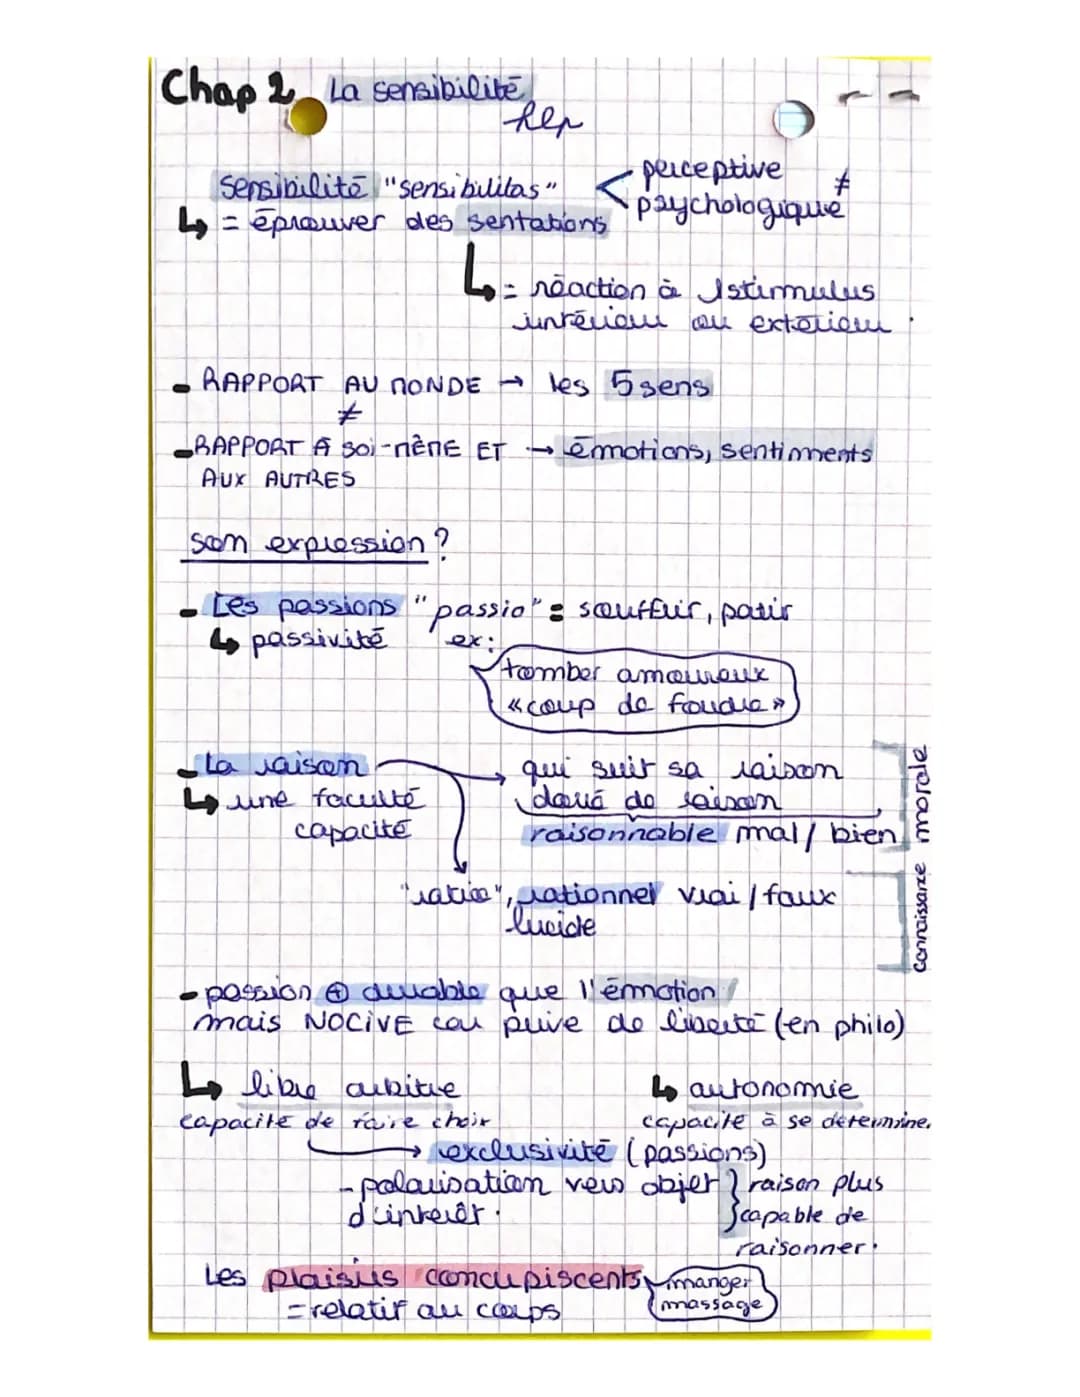 Chap 2 La sensibilité
hlp
sensibilité "sensibilitas" < perceptive ≠ psychologique
↳ = éprouver des sentations
↳ = réaction à 1 stimulus
intérieur ou extérieur.
- RAPPORT AU MONDE → les 5 sens
≠
- RAPPORT À SOI-MÊME ET → émotions, sentiments
AUX AUTRES
son expression ?
- Les passions "passio" = souffrir, patir
↳ passivité ex:
tomber amoureux
« coup de foudre »
- La raison → qui suit sa raison
↳ une faculté doué de raison
capacité raisonnable mal / bien
morale
"ratio", rationnel vrai / faux
lucide
connaissance
- passion ⊕ durable que l'émotion
mais NOCIVE car prive de liberté (en philo)
↳ libre arbitre ↳ autonomie
capacité de faire choix capacité à se détermine.
→ exclusivité (passions)
- polarisation vers objet } raison plus
d'intérêt. capable de
raisonner.
Les plaisirs concupiscents manger
= relatif au corps massage